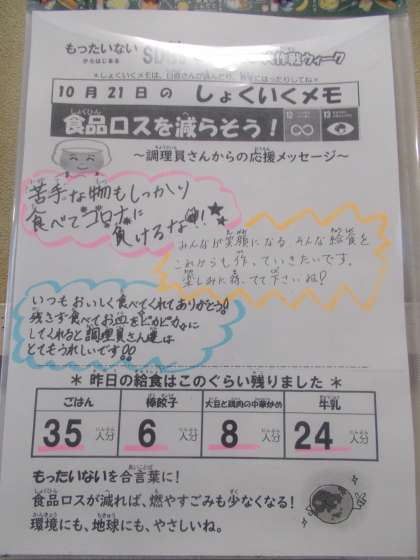 もったいない
からはじめる
SDGs
大作戦ウィーク
10月21日の しょくいくメモ
食品ロスを減らそう!
12
13
～調理員さんからの応援メッセージ～
苦手な物もしっかり
食べてコロナに
負けるな!
みんなが笑顔になる そんな給食を
これからも作っていきたいです。
楽しみに待ってて下さいね!
いつもおいしく食べてくれてありがとう!
残さず食べてお皿をピカピカに
してくれると調理員さん達は
とてもうれしいです!!
＊ 昨日の給食はこのぐらい残りました ＊
ごはん 棒餃子 大豆と鶏肉の中華炒め 牛乳
35人分 6人分 8人分 24人分
もったいないを合言葉に!
食品ロスが減れば、燃やすごみも少なくなる!
環境にも、地球にも、やさしいね。